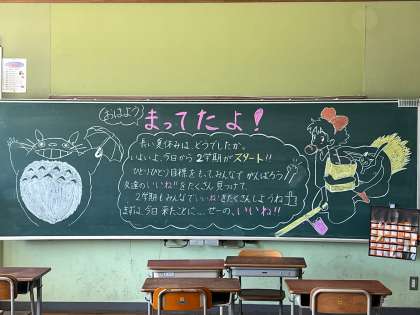 おはよう
まってたよ!
長い夏休みは、どうでしたか。
いよいよ、今日から2学期がスタート!!
ひとりひとり目標をもって、みんなでがんばろう
友達の"いいね"をたくさん見つけて、
2学期もみんなでいいねをたくさんしようね
まずは、今日来たことに…せーの、いいね!!